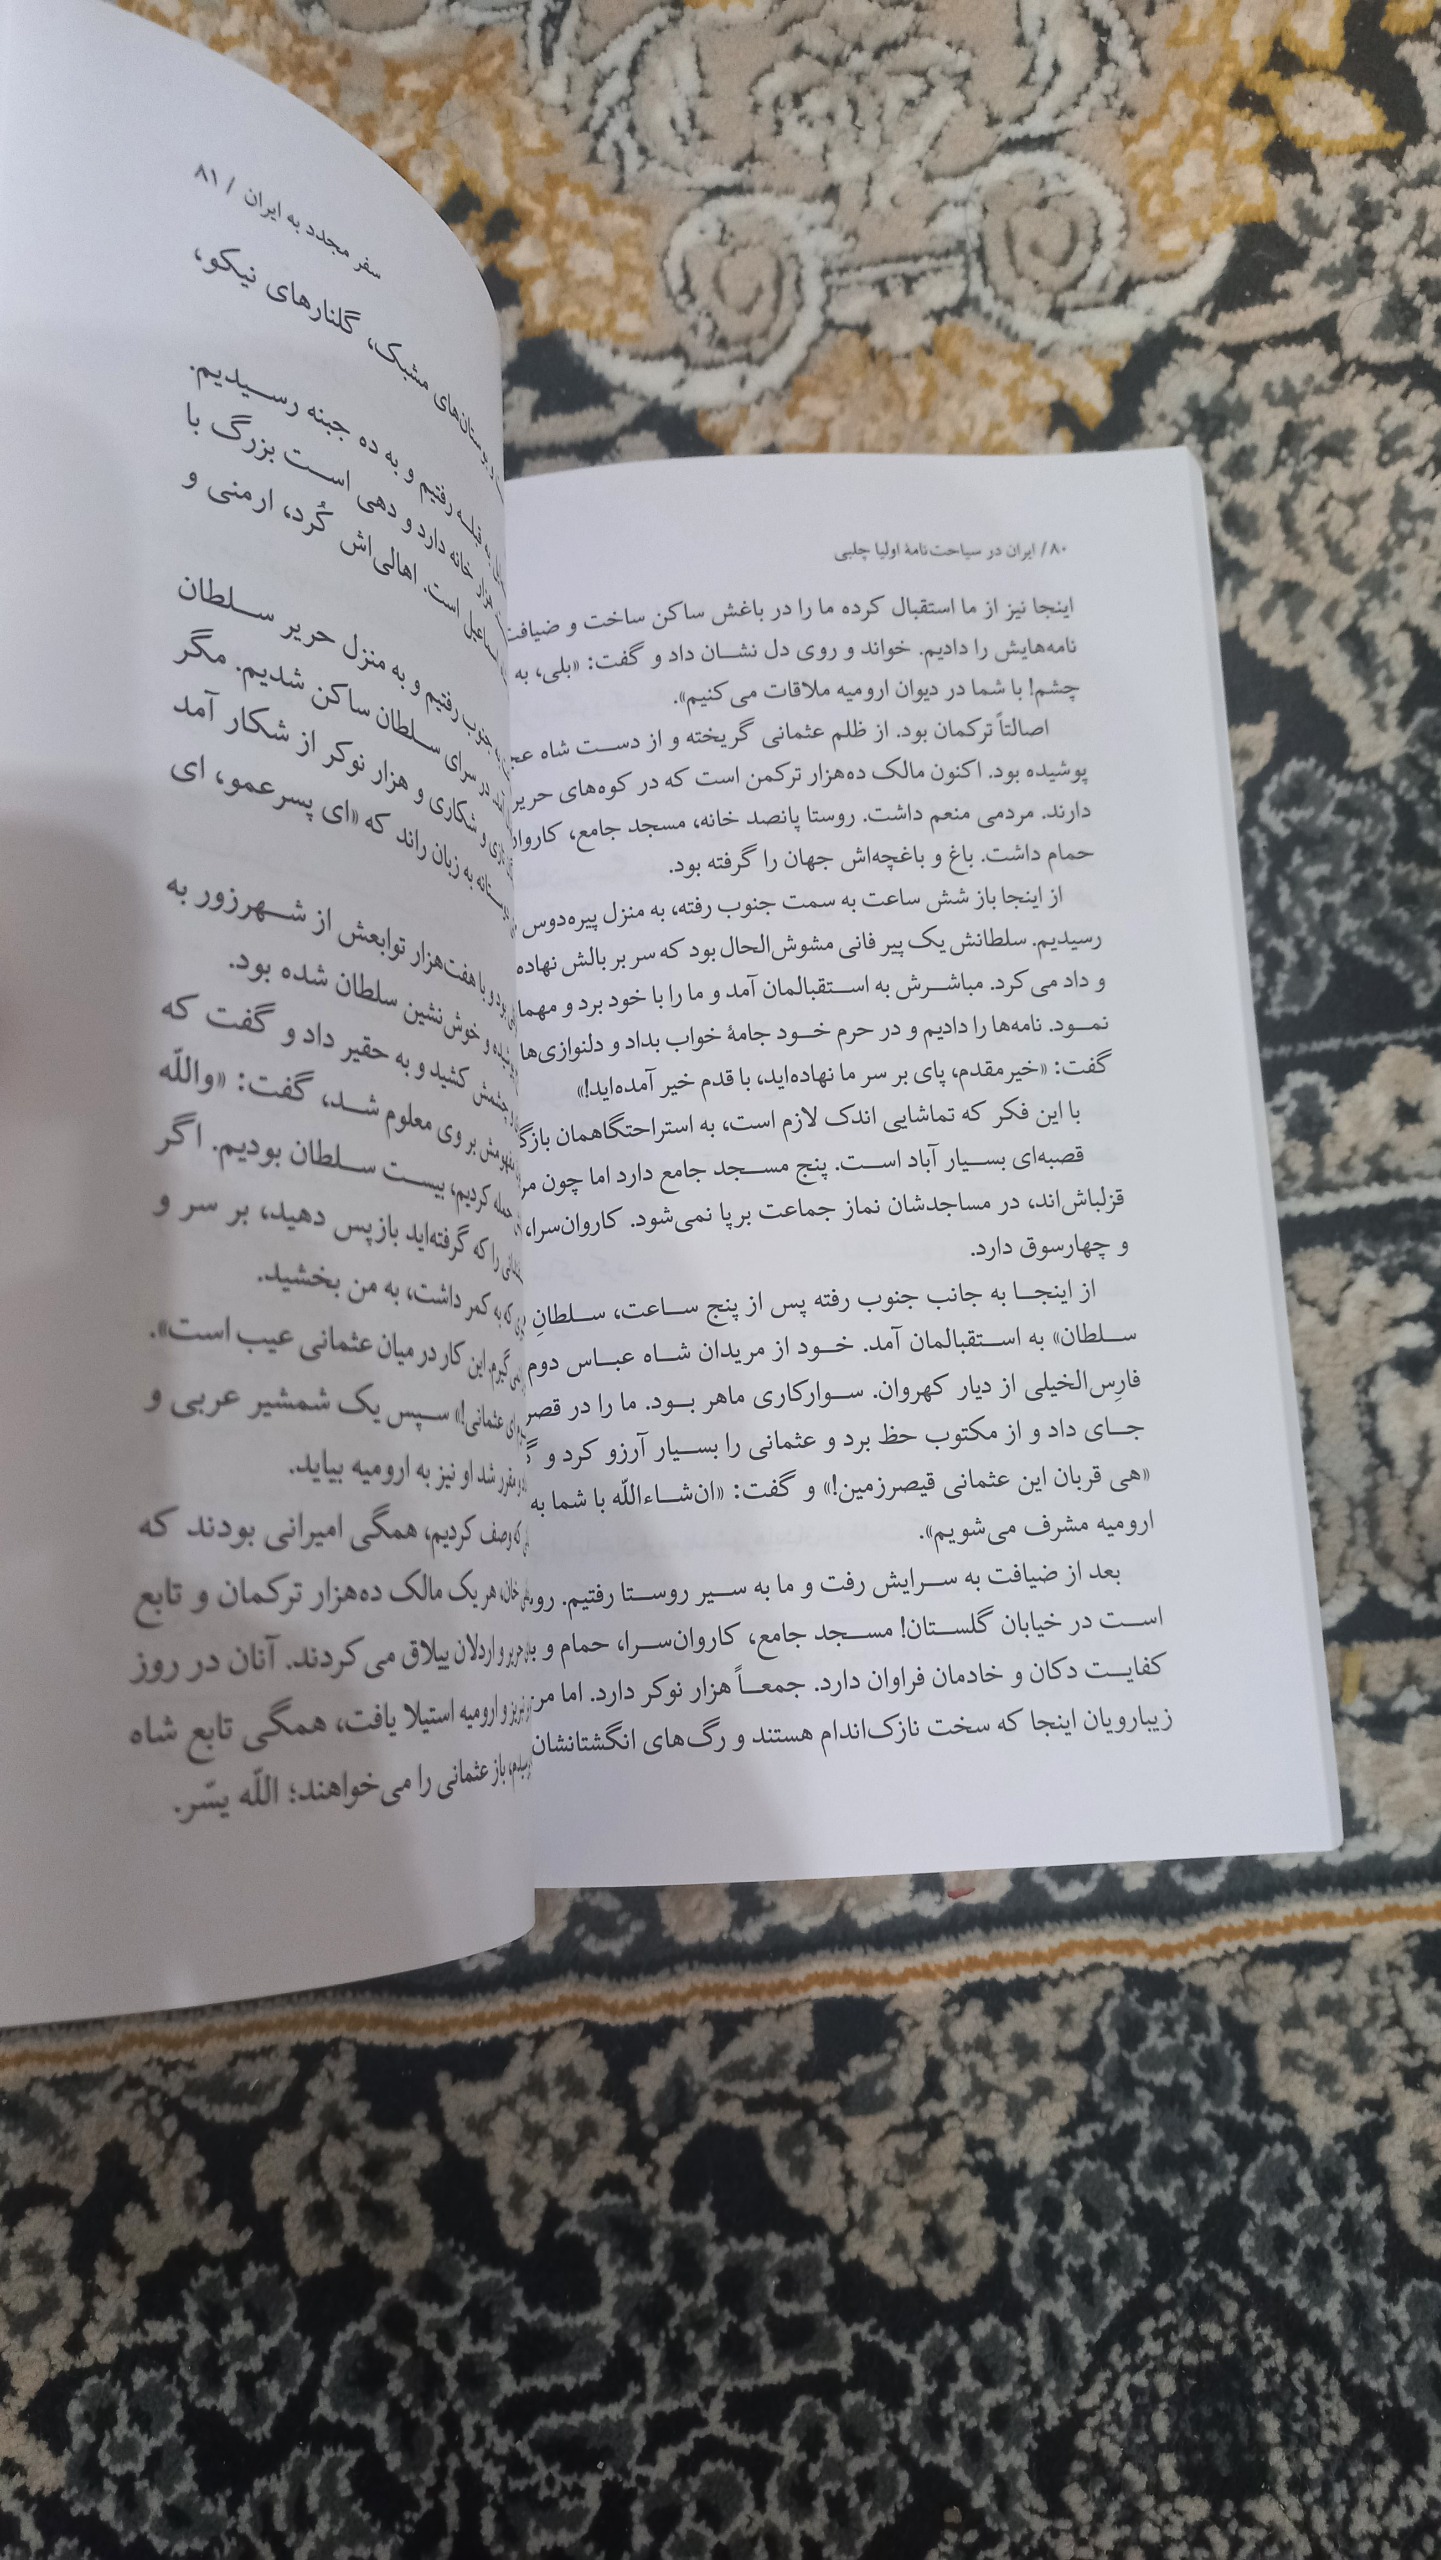 ۸۰/ ایران در سیاحت‌نامهٔ اولیا چلبی
اینجا نیز از ما استقبال کرده ما را در باغش ساکن ساخت و ضیافت
نامه‌هایش را دادیم. خواند و روی دل نشان داد و گفت: «بلی، به
چشم! با شما در دیوان ارومیه ملاقات می‌کنیم».
اصالتاً ترکمان بود. از ظلم عثمانی گریخته و از دست شاه
پوشیده بود. اکنون مالک ده‌هزار ترکمن است که در کوه‌های حریر
دارند. مردمی منعم داشت. روستا پانصد خانه، مسجد جامع،
حمام داشت. باغ و باغچه‌اش جهان را گرفته بود.
از اینجا باز شش ساعت به سمت جنوب رفته، به منزل پیره‌دوس
رسیدیم. سلطانش یک پیر فانی مشوش‌الحال بود که سر بر بالش نهاده
و داد می‌کرد. مباشرش به استقبالمان آمد و ما را با خود برد و
نمود. نامه‌ها را دادیم و در حرم خود جامهٔ خواب بداد و دلنوازی‌ها
گفت: «خیرمقدم، پای بر سر ما نهاده‌اید، با قدم خیر آمده‌اید!»
با این فکر که تماشایی اندک لازم است، به استراحتگاهمان
قصبه‌ای بسیار آباد است. پنج مسجد جامع دارد اما چون
قزلباش‌اند، در مساجدشان نماز جماعت برپا نمی‌شود. کاروان‌سرا،
و چهارسوق دارد.
از اینجا به جانب جنوب رفته پس از پنج ساعت، سلطانِ
سلطان» به استقبالمان آمد. خود از مریدان شاه عباس دوم
فارِس‌الخیلی از دیار کهروان. سوارکاری ماهر بود. ما را در قصر
جای داد و از مکتوب حظ برد و عثمانی را بسیار آرزو کرد و
«هی قربان این عثمانی قیصرزمین!» و گفت: «ان‌شاءاللّه با شما به
ارومیه مشرف می‌شویم».
بعد از ضیافت به سرایش رفت و ما به سیر روستا رفتیم.
است در خیابان گلستان! مسجد جامع، کاروان‌سرا، حمام و
کفایت دکان و خادمان فراوان دارد. جمعاً هزار نوکر دارد. اما
زیبارویان اینجا که سخت نازک‌اندام هستند و رگ‌های انگشتانشان
سفر مجدد به ایران / ۸۱
مشبک، گلنارهای نیکو،
رفتیم و به ده جبنه رسیدیم.
هزار خانه دارد و دهی است بزرگ با
است. اهالی‌اش کُرد، ارمنی و
جنوب رفتیم و به منزل حریر سلطان
در سرای سلطان ساکن شدیم. مگر
و شکاری و هزار نوکر از شکار آمد
به زبان راند که «ای پسرعمو، ای
بود و با هفت‌هزار توابعش از شهرزور به
و خوش‌نشین سلطان شده بود.
چشمش کشید و به حقیر داد و گفت که
بر وی معلوم شد، گفت: «واللّه
حمله کردیم، بیست سلطان بودیم. اگر
را که گرفته‌اید بازپس دهید، بر سر و
که به کمر داشت، به من بخشید.
این کار در میان عثمانی عیب است».
ای عثمانی!» سپس یک شمشیر عربی و
مقرر شد او نیز به ارومیه بیاید.
که وصف کردیم، همگی امیرانی بودند که
خان، هر یک مالک ده‌هزار ترکمان و تابع
حریر و اردلان ییلاق می‌کردند. آنان در روز
تبریز و ارومیه استیلا یافت، همگی تابع شاه
باز عثمانی را می‌خواهند؛ اللّه یسّر.